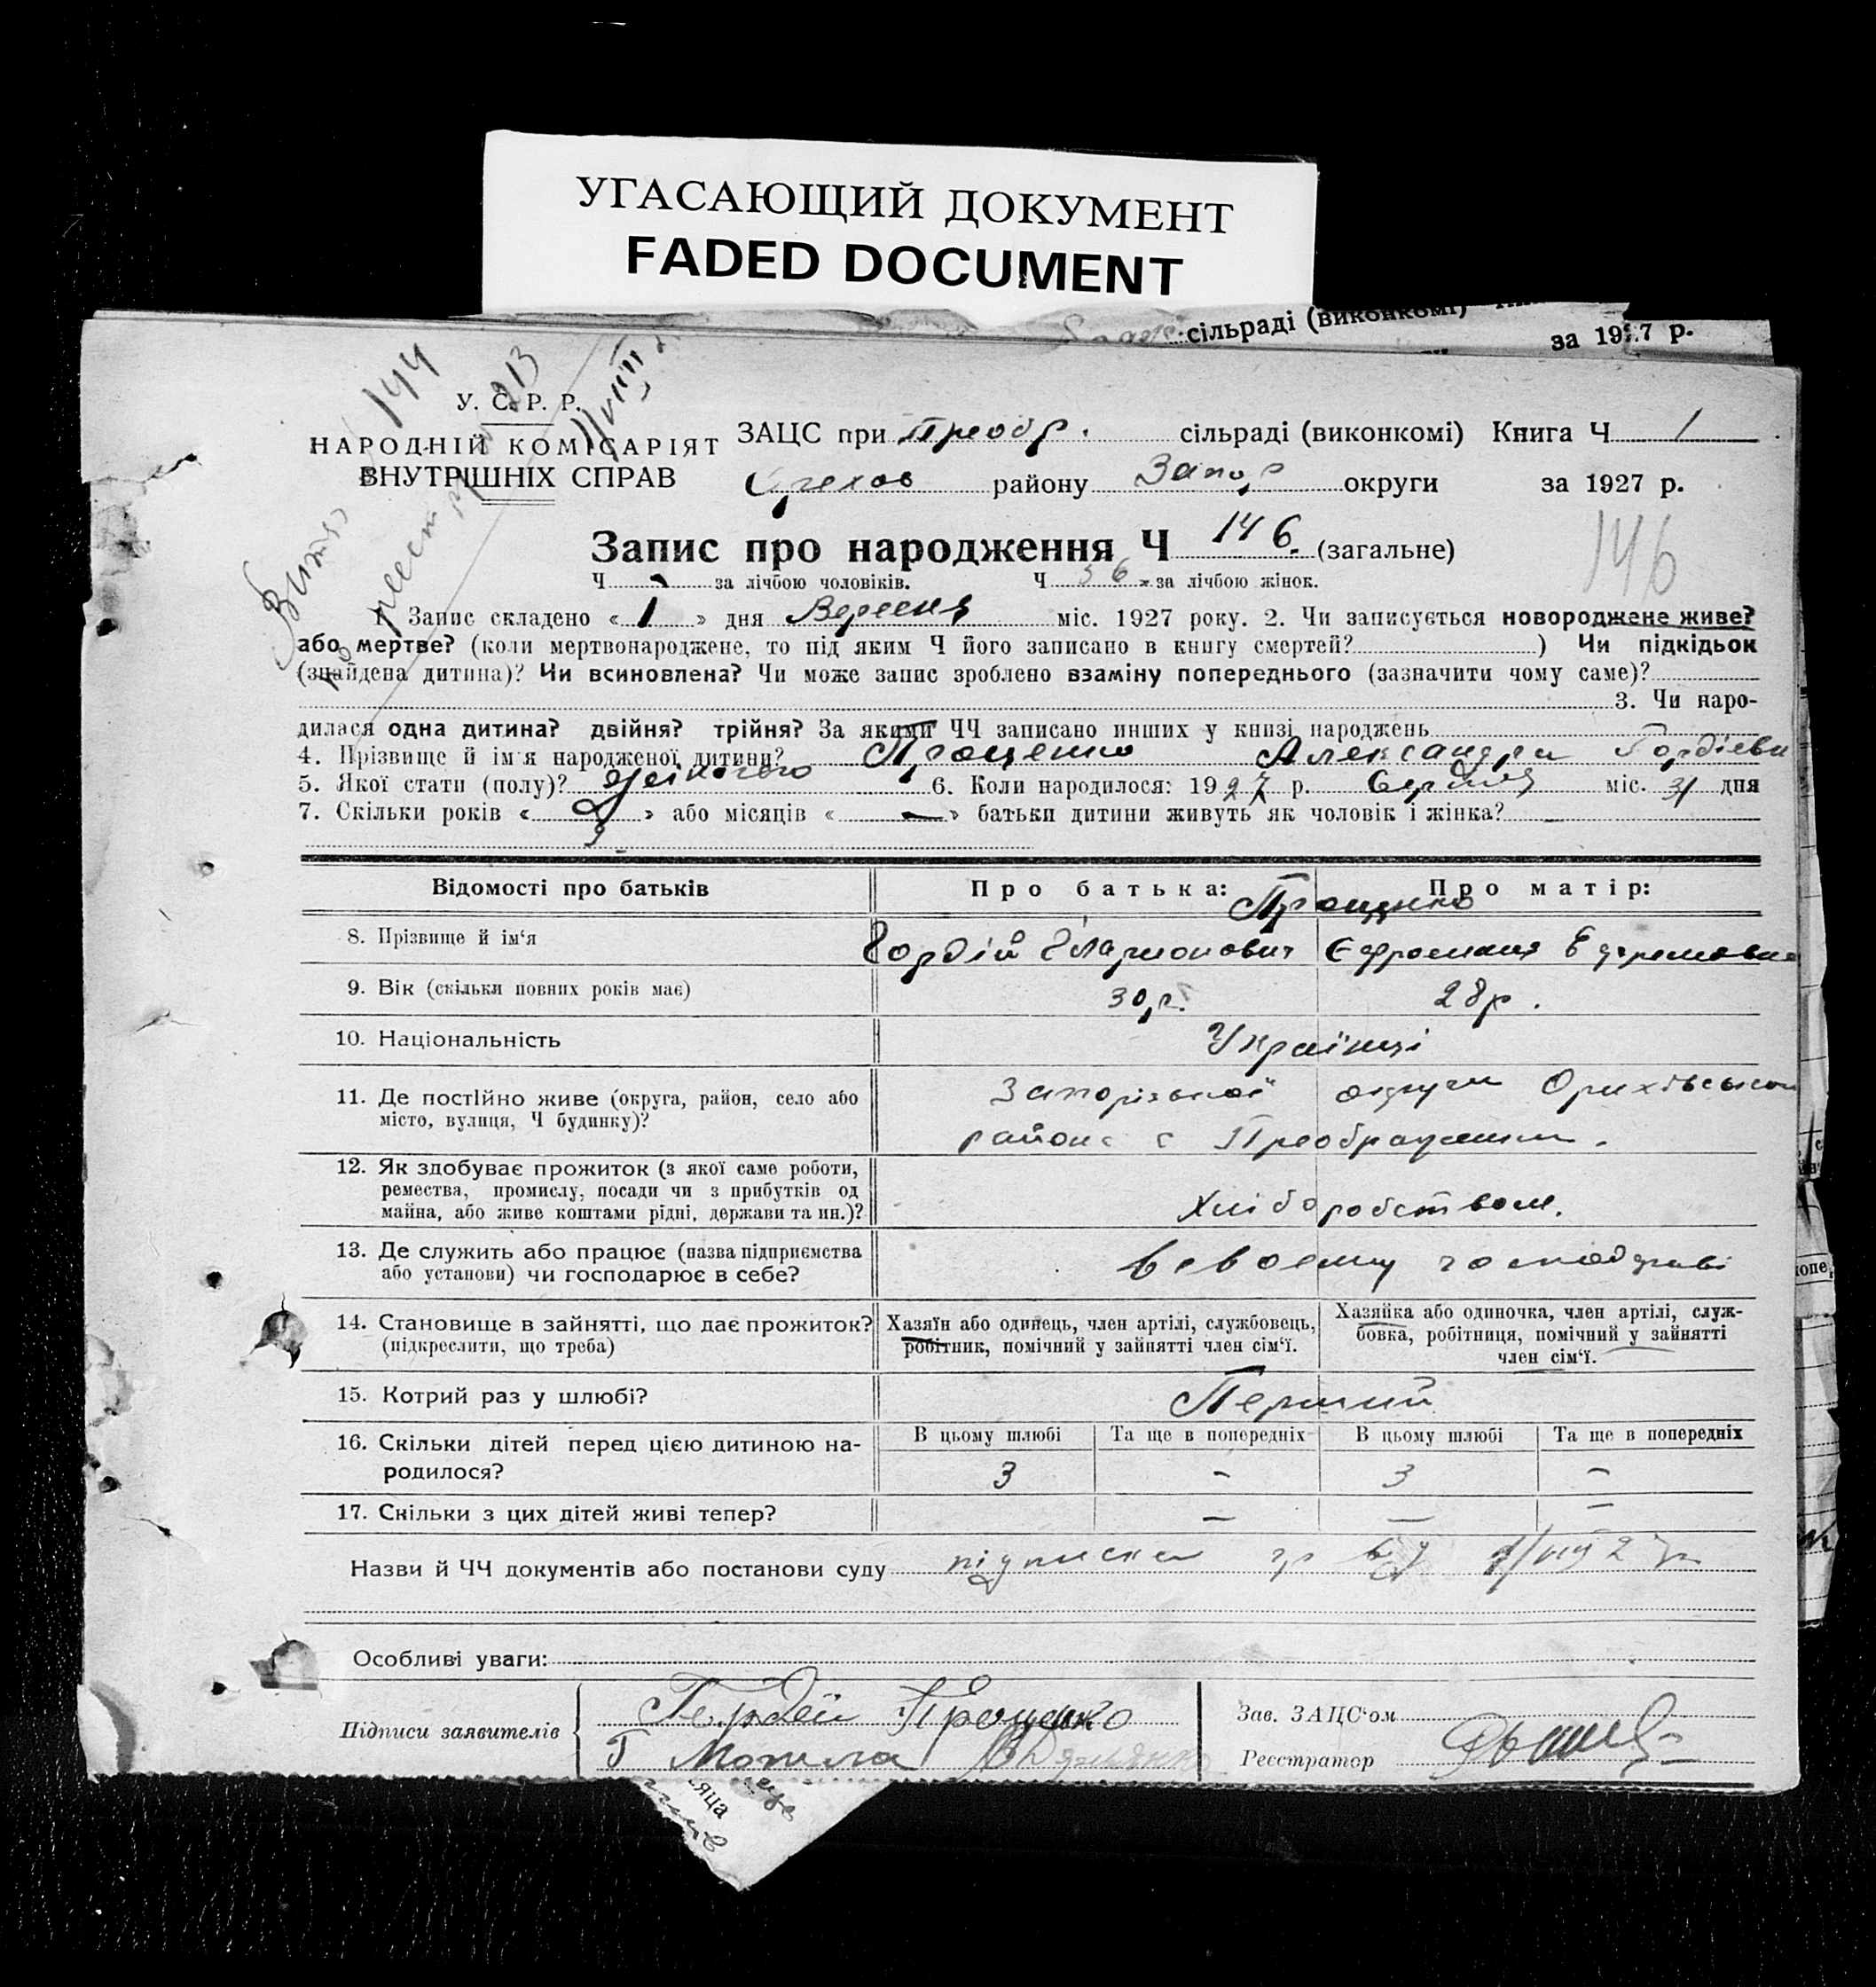 УГАСАЮЩИЙ ДОКУМЕНТ
FADED DOCUMENT
сільраді (виконкомі)
за 1927 р.
144
У. С. Р. Р.
НАРОДНІЙ КОМІСАРІЯТ
ВНУТРІШНІХ СПРАВ
ЗАЦС при Преобр. сільраді (виконкомі) Книга Ч 1
Орехов району Запор округи за 1927 р.
Запис про народження Ч 146. (загальне)
146
Ч - за лічбою чоловіків. Ч 56 за лічбою жінок.
1. Запис складено « 1 » дня Вересня міс. 1927 року. 2. Чи записується новороджене живе?
або мертве? (коли мертвонароджене, то під яким Ч його записано в книгу смертей? ) Чи підкідьок
(знайдена дитина)? Чи всиновлена? Чи може запис зроблено взаміну попереднього (зазначити чому саме)?
3. Чи наро-
дилася одна дитина? двійня? трійня? За якими ЧЧ записано инших у книзі народжень
4. Прізвище й ім'я народженої дитини? Проценко Александра Гордієвн
5. Якої стати (полу)? жіночого 6. Коли народилося: 1927 р. Серпня міс. 31 дня
7. Скільки років « 9 » або місяців « — » батьки дитини живуть як чоловік і жінка? —
Відомості про батьків Про батька: Про матір:
Проценко
8. Прізвище й ім'я Гордій Іларионович Єфросиния Ефремовна
9. Вік (скільки повних років має) 30 р. 28 р.
10. Національність Українці
11. Де постійно живе (округа, район, село або Запорізької округи Оріхівського
місто, вулиця, Ч будинку)? району с Преображенки.
12. Як здобуває прожиток (з якої саме роботи,
ремества, промислу, посади чи з прибутків од
майна, або живе коштами рідні, держави та ин.)? Хліборобством.
13. Де служить або працює (назва підприємства
або установи) чи господарює в себе? в своєму господарстві
14. Становище в зайнятті, що дає прожиток? Хазяїн або одинець, член артілі, службовець, Хазяйка або одиночка, член артілі, служ-
(підкреслити, що треба) робітник, помічний у зайнятті член сім'ї. бовка, робітниця, помічний у зайнятті
член сім'ї.
15. Котрий раз у шлюбі? Перший
16. Скільки дітей перед цією дитиною на- В цьому шлюбі Та ще в попередніх В цьому шлюбі Та ще в попередніх
родилося? 3 - 3 -
17. Скільки з цих дітей живі тепер? — — —
Назви й ЧЧ документів або постанови суду підписка
Особливі уваги:
Підписи заявителів Гордей Проценко
Г Могила
Зав. ЗАЦС'ом
Реєстратор